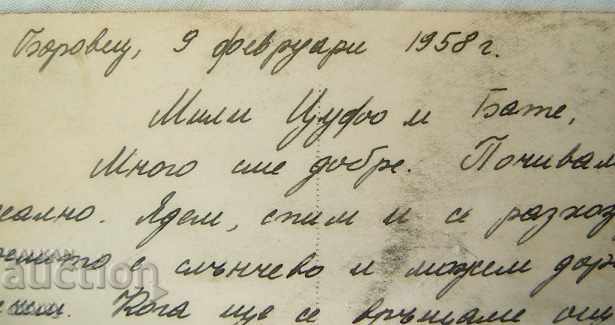 Боровец, 9 февруари 1958 г.
Мили Цуфо и Бате,
Много сме добре. Почивам
еално. Ядем, спим и се разход
емето е слънчево и можем дор
Кога ще се връщаме ощ
BALKAN
auction